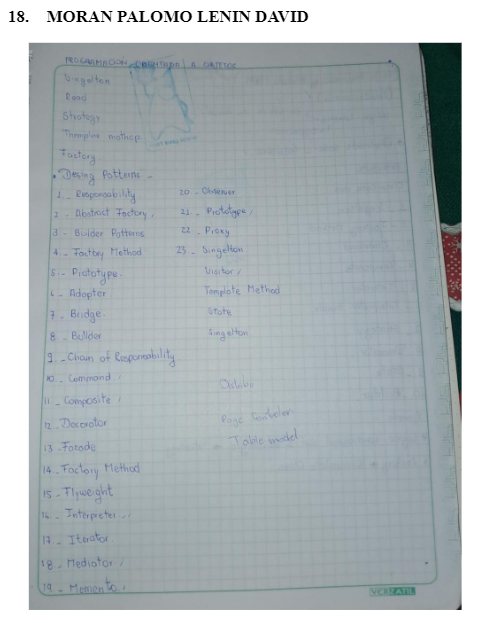 18. MORAN PALOMO LENIN DAVID
PROGRAMACION ORIENTADA A OBJETOS
Singelton
Read
Strategy
Factory
• Desing Patterns -
1.- Responsability
2 - Abstract Factory,
3 - Builder Patterns
4 - Factory Method
5 - Prototype.
6 - Adapter
7 - Bridge.
8 - Builder
9 - Chain of Responsability
10 - Command
11 - Composite
12 - Decorator
13 - Facade
14 - Factory Method
15 - Flyweight
16 - Interpreter
17 - Iterator.
18 - Mediator
19 - Momento
20 - Observer
21 - Prototype
22 - Proxy
23 - Singelton
Visitor
Template Method
State
Singelton
Table model